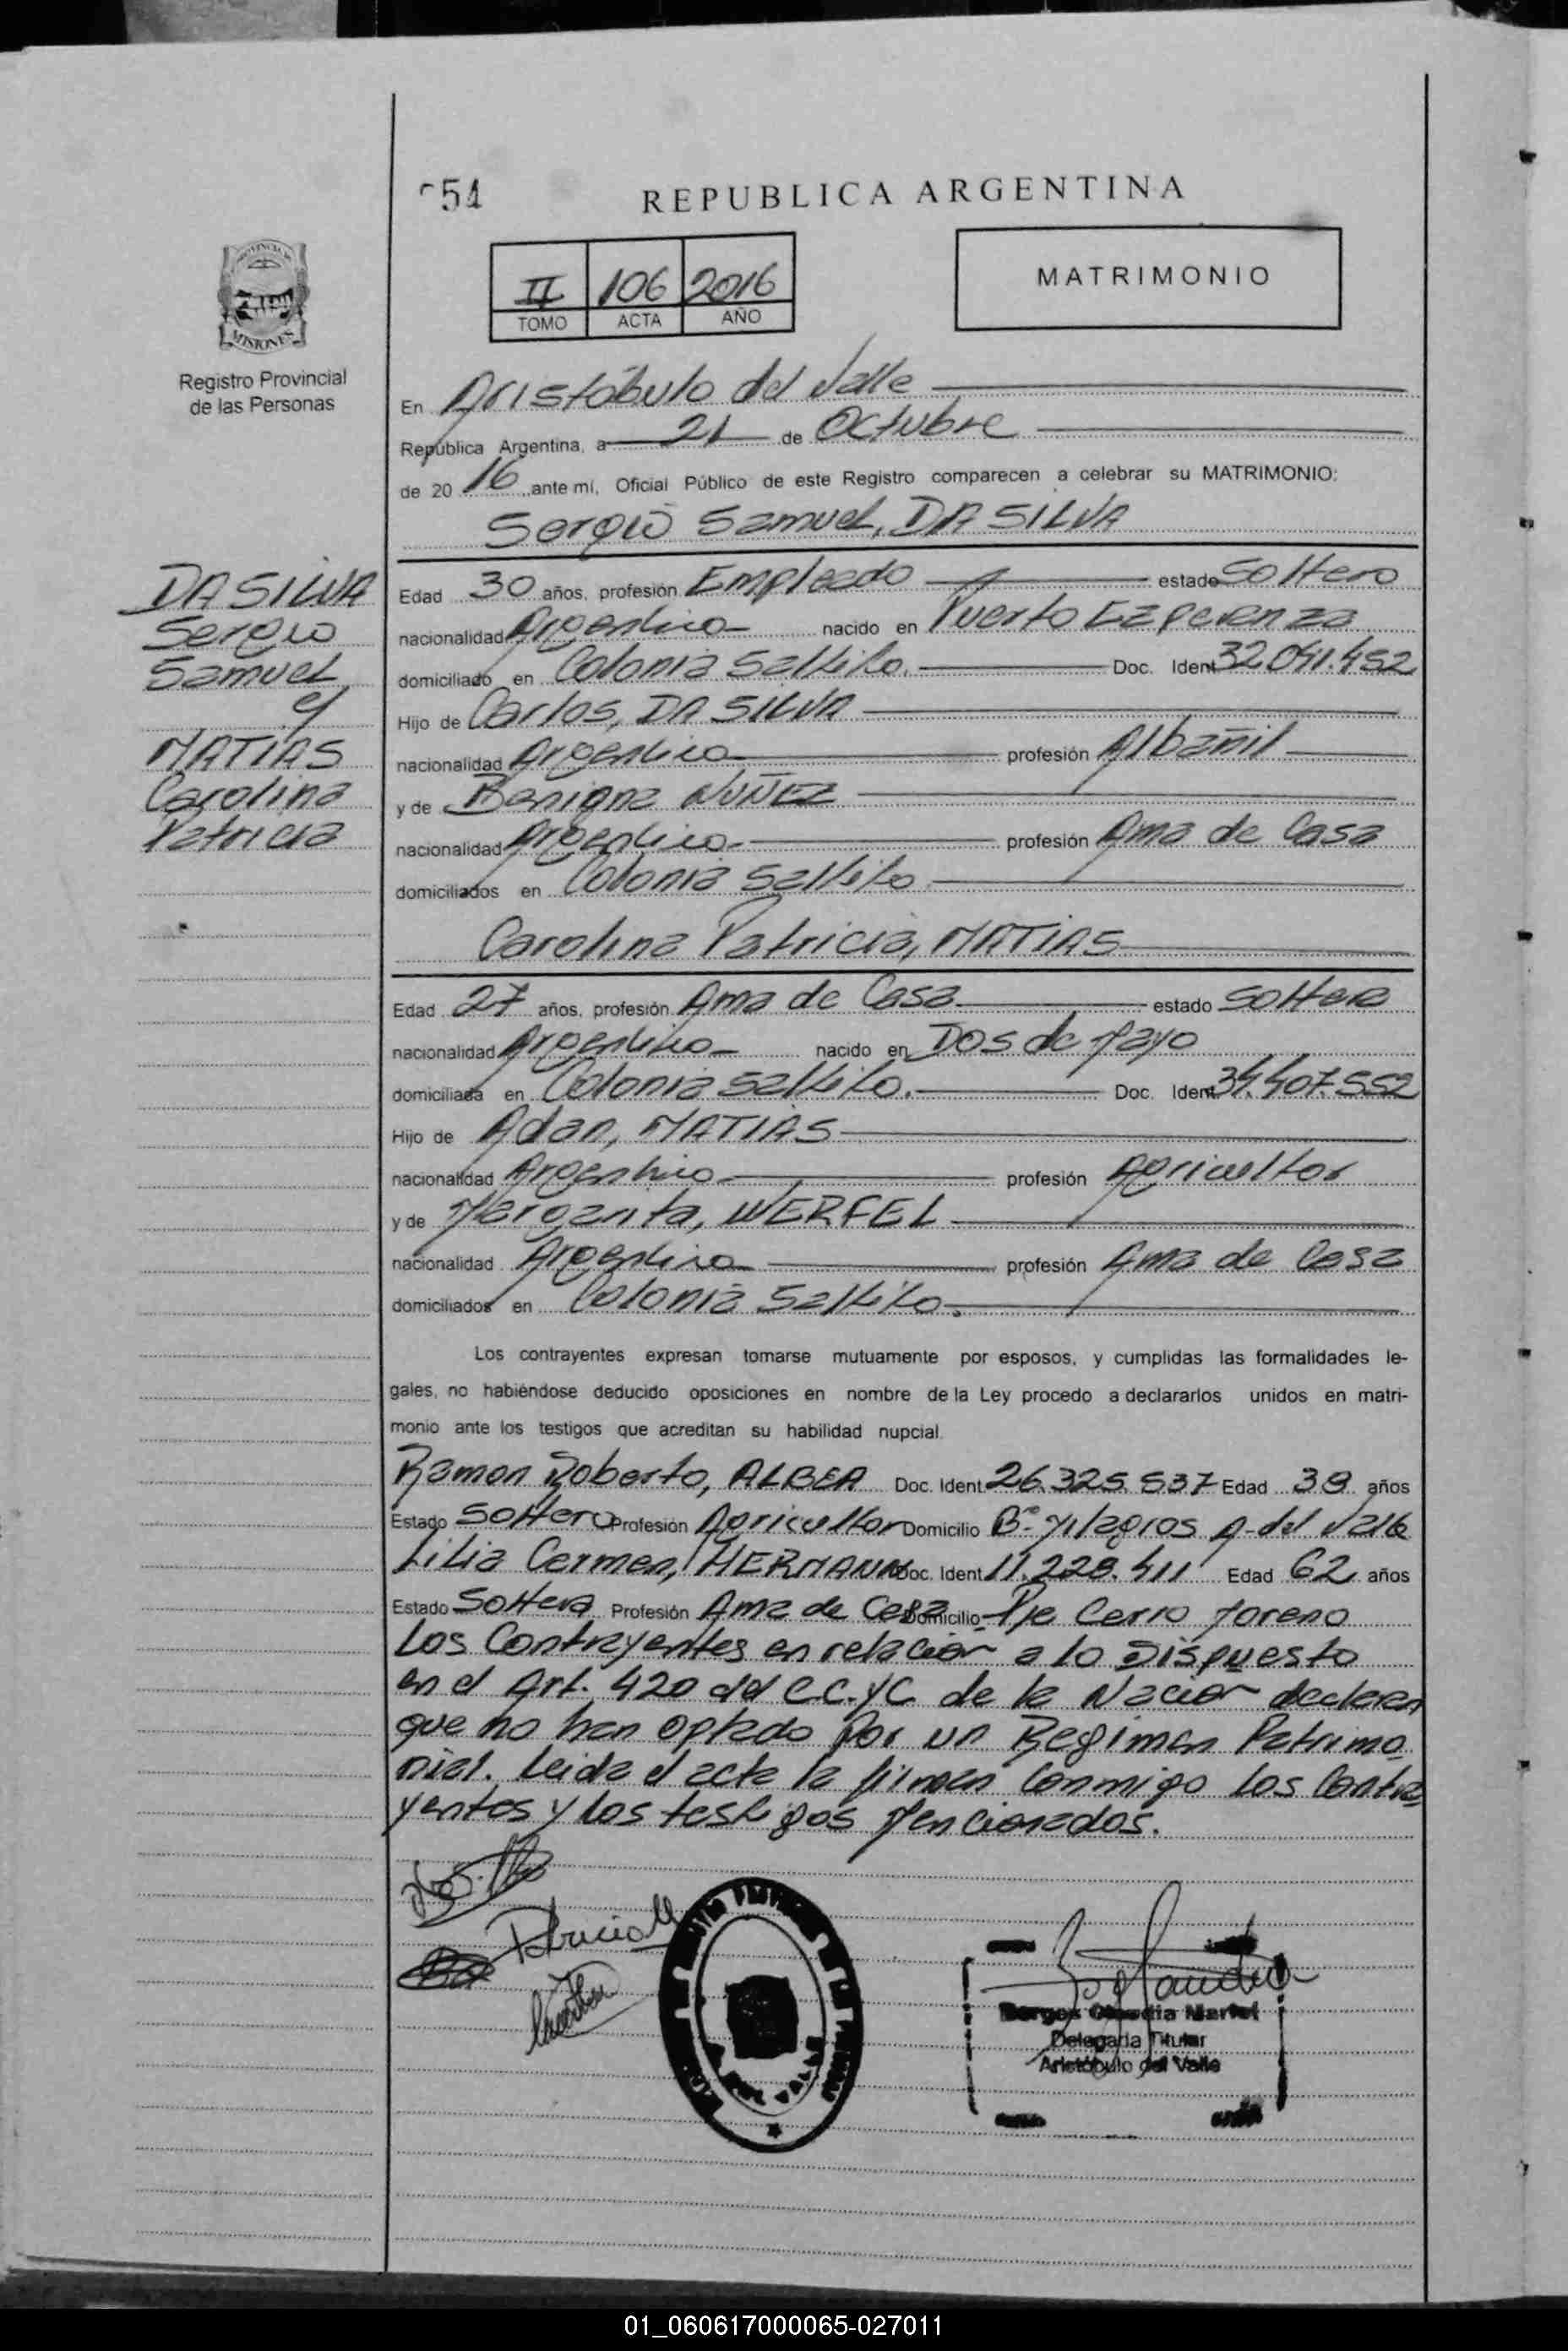 054
REPUBLICA ARGENTINA
II 106 2016
TOMO ACTA AÑO
MATRIMONIO
MISIONES
Registro Provincial
de las Personas
En Aristóbulo del Valle
República Argentina, a 21 de Octubre
de 20 16 ante mí, Oficial Público de este Registro comparecen a celebrar su MATRIMONIO:
Sergio Samuel, DA SILVA
DA SILVA
Sergio
Samuel
y
MATIAS
Carolina
Patricia
Edad 30 años, profesión Empleado estado Soltero
nacionalidad Argentina nacido en Puerto Esperanza
domiciliado en Colonia Saltito. Doc. Ident 32.041.452
Hijo de Carlos, DA SILVA
nacionalidad Argentina profesión Albañil
y de Benigna NUÑEZ
nacionalidad Argentina profesión Ama de Casa
domiciliados en Colonia Saltito
Carolina Patricia, MATIAS
Edad 27 años, profesión Ama de Casa estado Soltera
nacionalidad Argentina nacido en Dos de Mayo
domiciliada en Colonia Saltito. Doc. Ident 34.407.552
Hijo de Adan, MATIAS
nacionalidad Argentina profesión Agricultor
y de Margarita, WERFEL
nacionalidad Argentina profesión Ama de Casa
domiciliados en Colonia Saltito.
Los contrayentes expresan tomarse mutuamente por esposos, y cumplidas las formalidades le-
gales, no habiéndose deducido oposiciones en nombre de la Ley procedo a declararlos unidos en matri-
monio ante los testigos que acreditan su habilidad nupcial.
Ramon Roberto, ALBEA Doc. Ident 26.325.537 Edad 38 años
Estado Soltero Profesión Agricultor Domicilio B° Milagros A. del Valle
Lilia Carmen, HERMANN Doc. Ident 11.228.411 Edad 62 años
Estado Soltera Profesión Ama de Casa Domicilio Pje Cerro Moreno
Los Contrayentes en relación a lo Dispuesto
en el Art. 420 del C.C.yC. de la Nacion declaran
que no han optado por un Regimen Patrimo
nial. Leida el acta la firman conmigo los Contra
yentes y los testigos Mencionados.
Patricia M
Borges Claudia Mariel
Delegada Titular
Aristóbulo del Valle
01_060617000065-027011